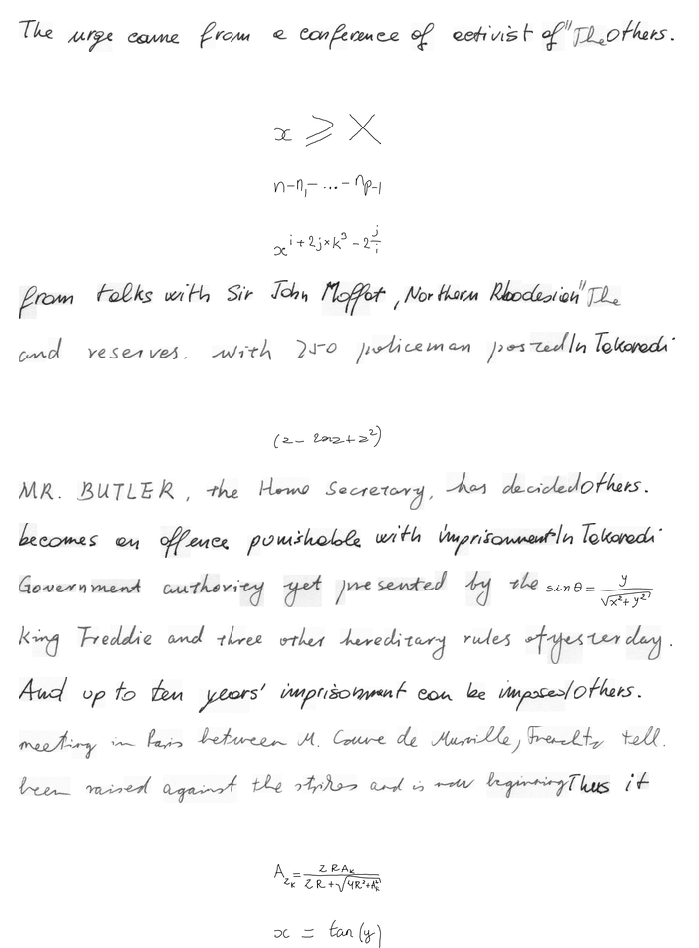 The urge came from a conference of activist of "The others.
x ⩾ X
n-n₁-...-n_{p-1}
x^{i+2j×k^3-2\frac{j}{i}}
from talks with Sir John Moffat, Northern Rhodesian "The
and reserves. With 250 policeman posted In Takoradi
(z- 2az+z²)
MR. BUTLER, the Home Secretary, has decided others.
becomes an offence punishable with imprisonment In Takoradi
Government authority yet presented by the sinθ = \frac{y}{\sqrt{x^2+y^2}}
King Freddie and three other hereditary rules of yesterday.
And up to ten years' imprisonment can be imposed others.
meeting in Paris between M. Couve de Murville, French to tell.
been raised against the strikes and is now beginning Thus it
A_{2K} = \frac{2RA_K}{2R+\sqrt{4R^2+A_K^2}}
x = tan(y)